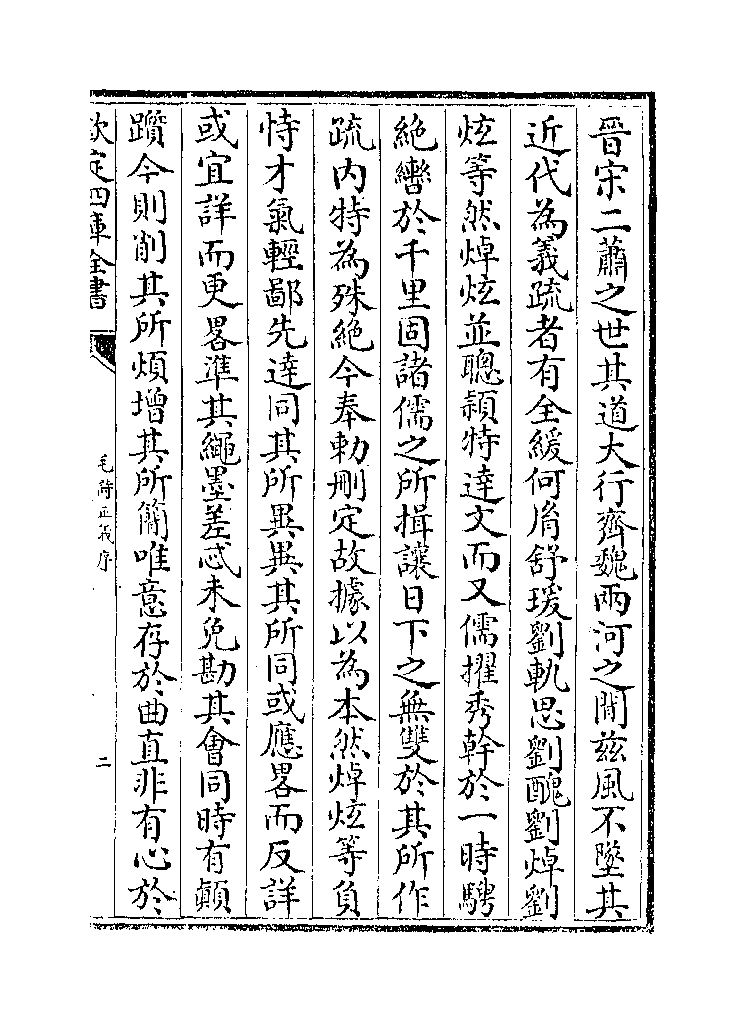 晉宋二蕭之世其道大行齊魏兩河之間兹風不墜其
近代為義疏者有全緩何胤舒瑗劉軌思劉醜劉焯劉
炫等然焯炫並聰頴特達文而又儒擢秀幹於一時騁
絶轡於千里固諸儒之所揖讓日下之無雙於其所作
疏内特為殊絶今奉勅刪定故據以為本然焯炫等負
恃才氣輕鄙先達同其所異異其所同或應畧而反詳
或宜詳而更畧準其繩墨差忒未免勘其會同時有顛
躓今則削其所煩增其所簡唯意存於曲直非有心於
欽定四庫全書
毛詩正義序
二